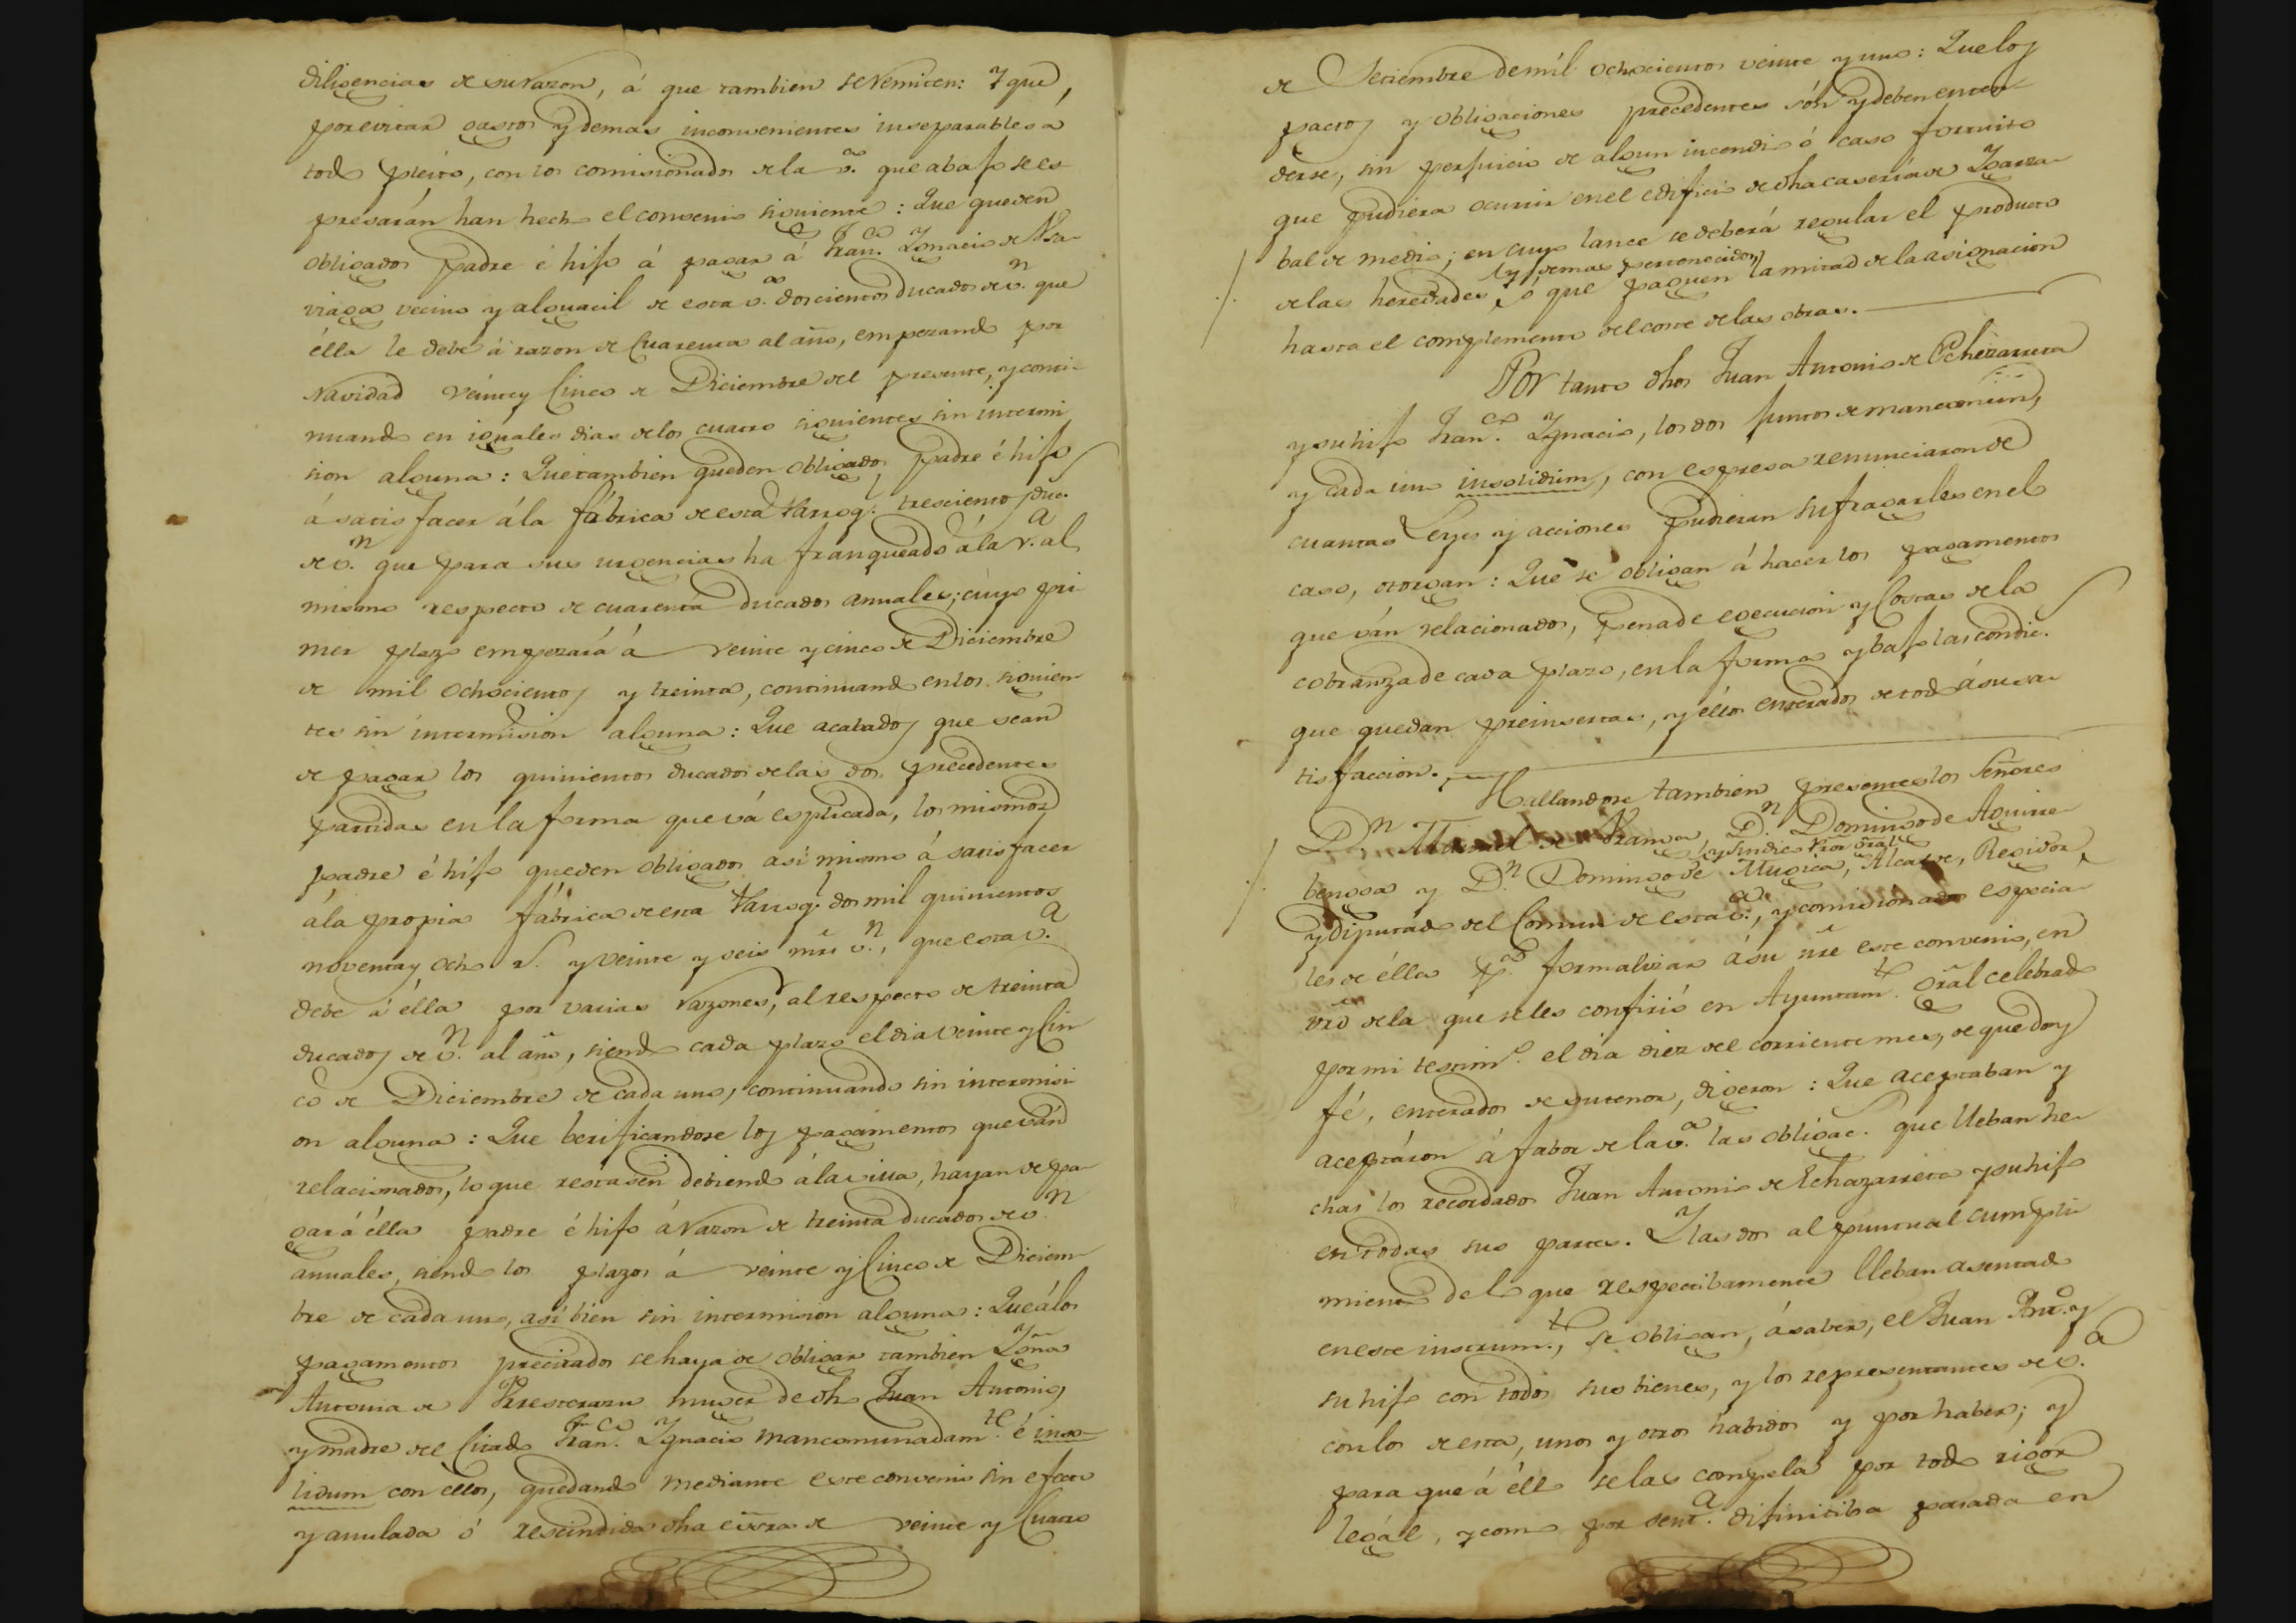 diligencias de su razon, á que tambien se remiten: Y que,
por evitar gastos y demas inconvenientes inseparables a
todo pleito, con los comisionados de la v.ª que abajo se es
presarán han hecho el convenio siguiente: Que queden
obligados padre é hijo á pagar á Fran.co Ygnacio de
vecino y alguacil de esta v.ª doscientos ducados de v.n que
élla le debe á razon de Cuarenta al año, empezando por
Navidad veinte y Cinco de Diciembre del presente, y conti-
nuando en iguales dias de los cuatro siguientes sin intermi
sion alguna: Que tambien queden obligados padre é hijo
á satisfacer á la fábrica de esta Parroq.l trescientos duc.
de v.n que para sus urgencias ha franqueado á la v.a al
mismo respecto de cuarenta ducados anuales; cuyo pri-
mer plazo empezará á veinte y cinco de Diciembre
de mil ochocientos y treinta, continuando en los siguien
tes sin intermision alguna: Que acabados que sean
de pagar los quinientos ducados de las dos precedentes
partidas en la forma que vá esplicada, los mismos
padre é hijo queden obligados asi mismo á satisfacer
á la propia fábrica de esta Parroq.l dos mil quinientos
noventa y ocho r.s y veinte y seis mrs v.n, que esta v.a
debe á élla por varias razones, al respecto de treinta
ducados de v.n al año, siendo cada plazo el dia veinte y Cin
co de Diciembre de cada uno, continuando sin intermisi
on alguna: Que berificandose los pagamentos que ván
relacionados, lo que restasen debiendo á la villa, hayan de pa-
gar á élla padre é hijo á razon de treinta ducados de v.n
anuales, siendo los plazos á veinte y Cinco de Diciem-
bre de cada uno, asi bien sin intermision alguna: Que á los
pagamentos precitados se haya de obligar tambien Ygna
Antonia de muger de dho Juan Antonio,
y madre del Citado Fran.co Ygnacio mancomunadam.te é inso-
lidum con ellos, quedando mediante este convenio sin efecto
y anulada ó rescindida dha escra de veinte y Cuatro
de Setiembre de mil ochocientos veinte y uno: Que los
pactos y obligaciones precedentes són y deben enten-
derse, sin perjuicio de algun incendio ó caso fortuito
que pudiera ocurrir en el edificio de dha caseria de Ygarza-
bal de medio; en cuyo lance se deberá regular el producto
y demas pertenecidos
de las heredades, ó que paguen la mitad de la asignacion
hasta el complemento del coste de las obras.
Por tanto dhos Juan Antonio de Echezarreta
y su hijo Fran.co Ygnacio, los dos juntos de mancomun,
y cada uno insolidum, con espresa renunciacion de
cuantas Leyes y acciones pudieran sufragarles en el
caso, otorgan: Que se obligan á hacer los pagamentos
que ván relacionados, pena de egecucion y Costas de la
cobranza de cada plazo, en la forma y bajo las condic.
que quedan preinsertas, y éllos enterados de todo á su sa-
tisfaccion. Hallandose tambien presentes los Señores
D.n Manuel de D.n Domingo de Aguirre-
y Sindico Pror Gral
bengoa y D.n Domingo de Mugica, Alcalde, Regidor,
y Diputado del Comun de esta v.ª, y comisionados especia-
les de élla p.a formalizar á su nre este convenio, en
vrd de la que se les confirió en Ayuntam.to gral celebrado
por mi testim.o el dia diez del corriente mes, de que doy
fé, enterados de su tenor, digeron: Que aceptaban y
aceptáron á fabor de la v.ª las obligac. que lleban he-
chas los recordados Juan Antonio de Echazarreta y su hijo
en todas sus partes. Y las dos al puntual cumpli
miento de lo que respectibamente lleban asentado
en este instrum.to, se obligan, á saber, el Juan Ant.o y
su hijo con todos sus bienes, y los representantes de v.a
con los de esta, unos y otros habidos y por haber; y
para que á éllo se las compela por todo rigor
legál, y como por sent.a difinitiba pasada en